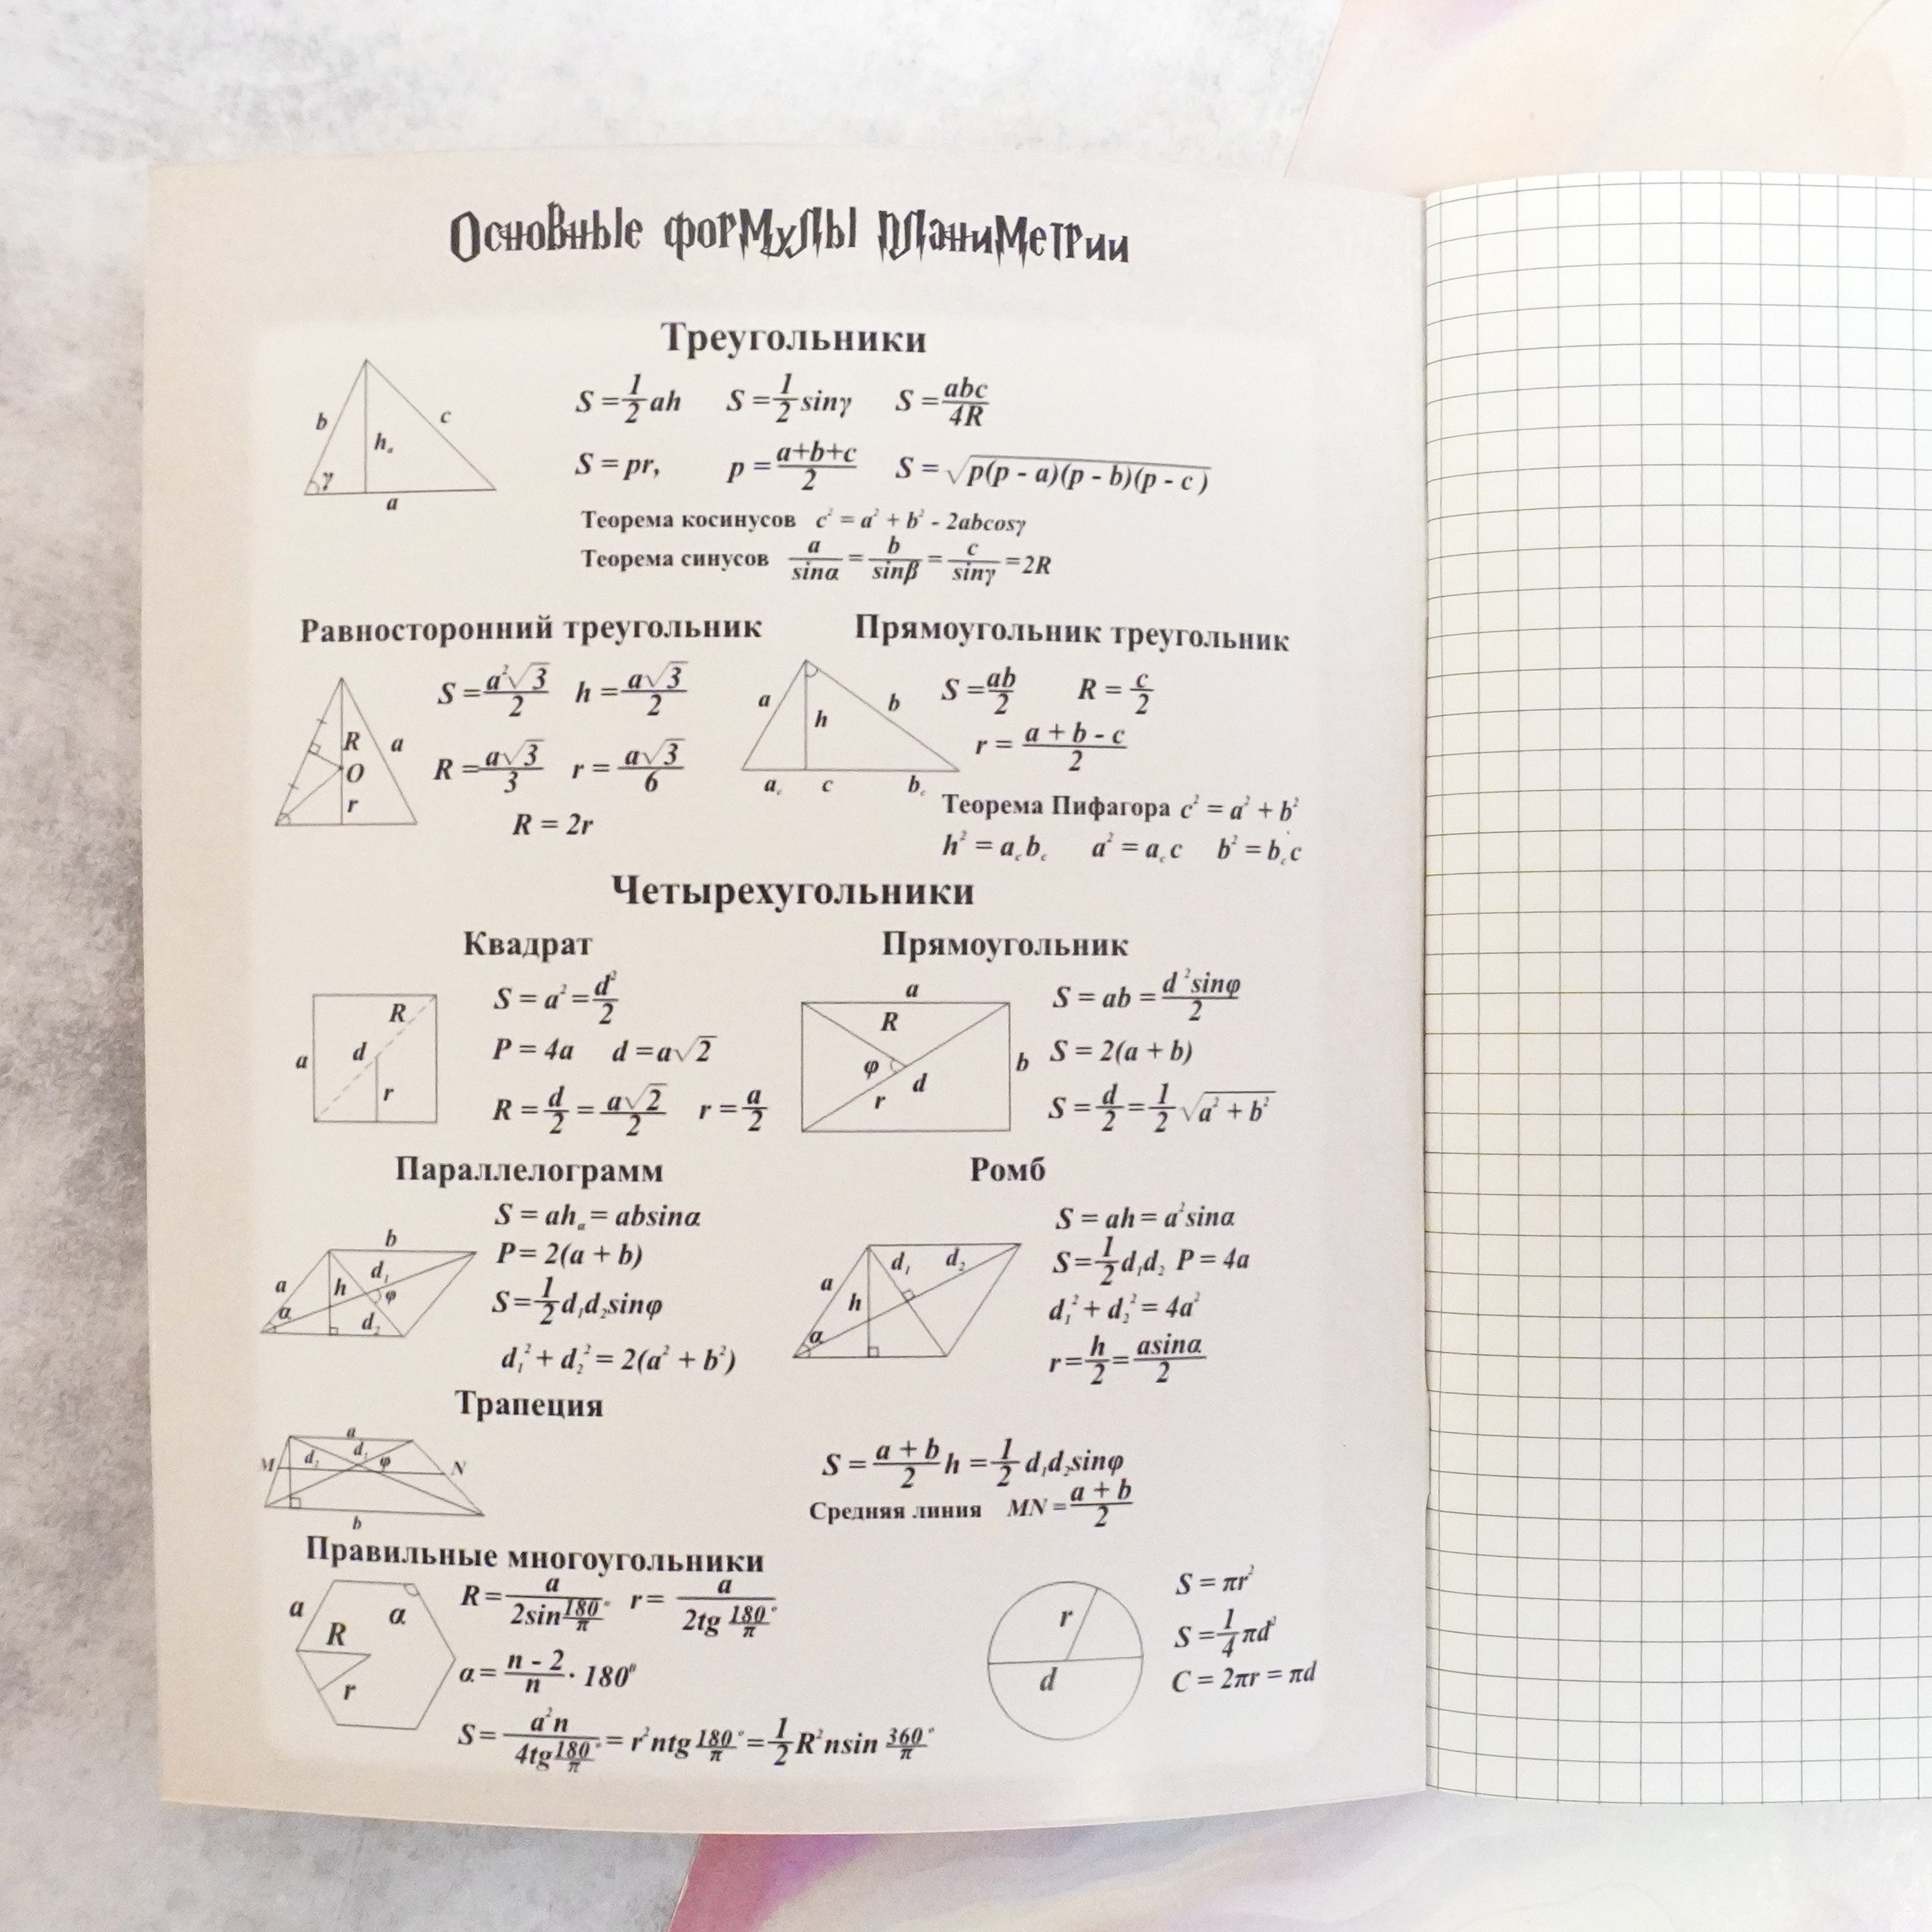 Основные формулы планиметрии
Треугольники
b c hₐ γ a
S = 1/2 ah S = 1/2 sinγ S = abc/4R
S = pr, p = a+b+c/2 S = √p(p - a)(p - b)(p - c)
Теорема косинусов c² = a² + b² - 2abcosγ
Теорема синусов a/sinα = b/sinβ = c/sinγ = 2R
Равносторонний треугольник
R a O r
S = a²√3/2 h = a√3/2
R = a√3/3 r = a√3/6
R = 2r
Прямоугольник треугольник
a h b a꜀ c b꜀
S = ab/2 R = c/2
r = a + b - c/2
Теорема Пифагора c² = a² + b²
h² = a꜀b꜀ a² = a꜀c b² = b꜀c
Четырехугольники
Квадрат
R a d r
S = a² = d²/2
P = 4a d = a√2
R = d/2 = a√2/2 r = a/2
Прямоугольник
a R φ d b r
S = ab = d²sinφ/2
S = 2(a + b)
S = d/2 = 1/2 √a² + b²
Параллелограмм
b a d₁ h φ α d₂
S = ahₐ = absinα
P = 2(a + b)
S = 1/2 d₁d₂sinφ
d₁² + d₂² = 2(a² + b²)
Ромб
d₁ d₂ a h α
S = ah = a²sinα
S = 1/2 d₁d₂ P = 4a
d₁² + d₂² = 4a²
r = h/2 = asinα/2
Трапеция
a M d₂ d₁ φ N b
S = a + b/2 h = 1/2 d₁d₂sinφ
Средняя линия MN = a + b/2
Правильные многоугольники
a α R r
R = a/2sin180°/π r = a/2tg 180°/π
α = n - 2/n · 180⁰
S = a²n/4tg180°/π = r²ntg 180°/π = 1/2 R²nsin 360°/π
r d
S = πr²
S = 1/4 πd²
C = 2πr = πd